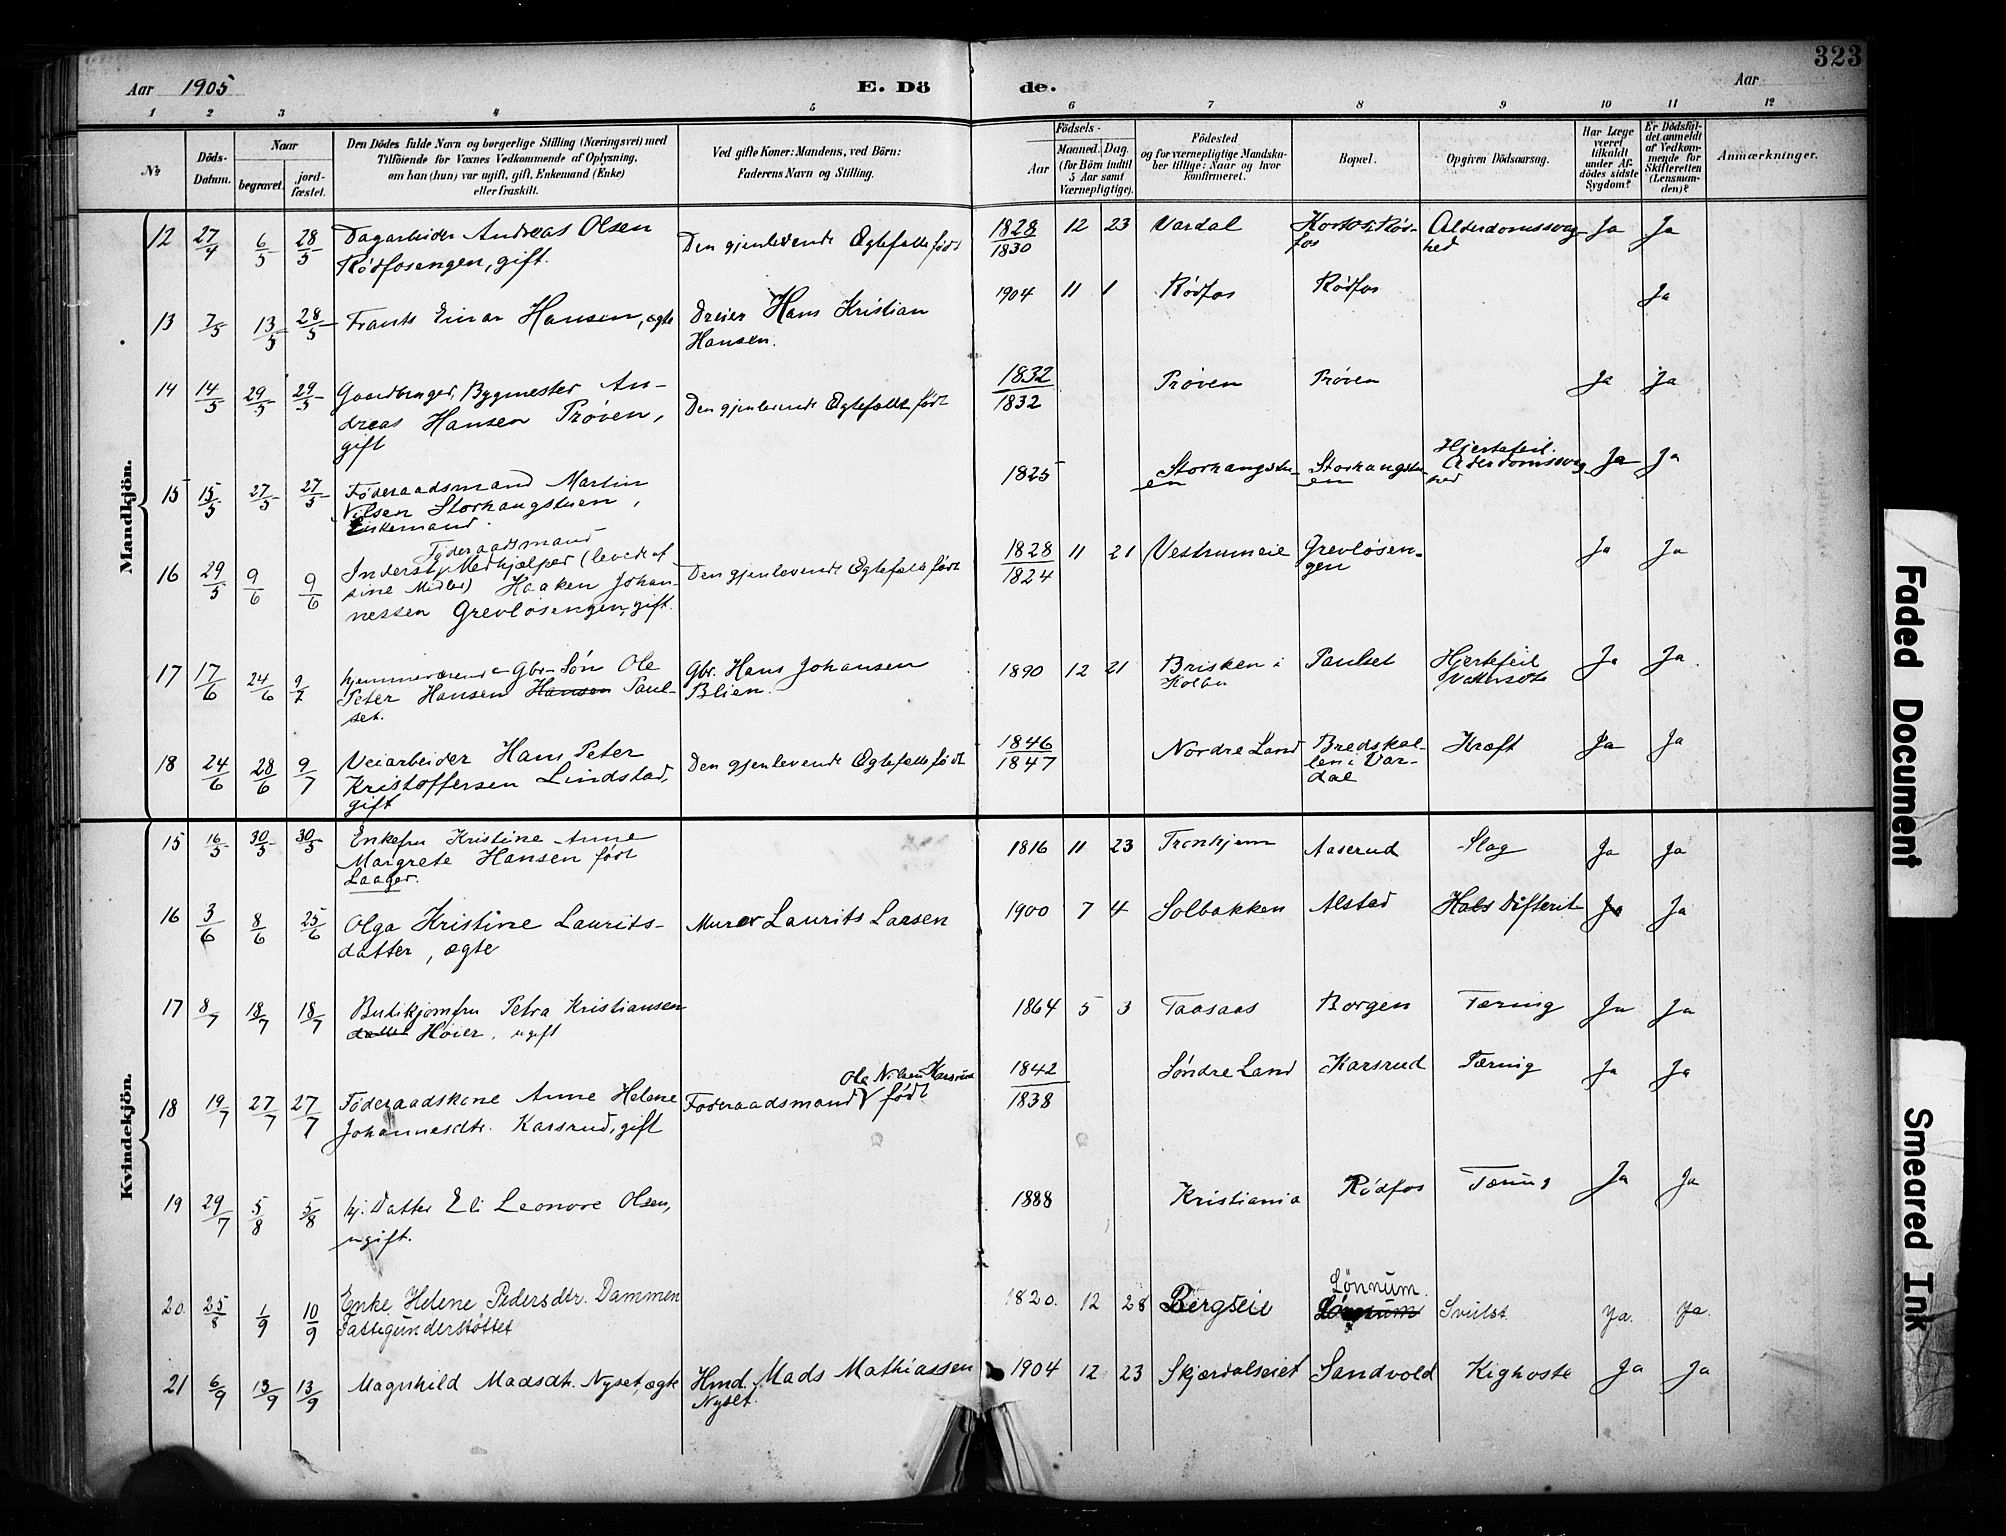 323
Aar 1905 E. Dö de. Aar
1 2 3 4 5 6 7 8 9 10 11 12
No
Döds-Datum.
Naar
begravet.
jord-fæstet.
Den Dödes fulde Navn og borgerlige Stilling (Næringsvei) med
Tilföiende for Voxnes Vedkommende af Oplysning,
om han (hun) var ugift, gift, Enkemand (Enke)
eller fraskilt.
Ved gifte Koner: Mandens, ved Börn:
Faderens Navn og Stilling.
Födsels-
Aar
Maaned. Dag.
(for Börn indtil
5 Aar samt
Værnepligtige).
Födested
og for værnepligtige Mandska-
ber tillige: Naar og hvor
konfirmeret.
Bopæl.
Opgiven Dödsaarsag.
Har Læge
været
tilkaldt
under Af-
dödes sidste
Sygdom?
Er Dödsfal-
det anmeldt
af Vedkom-
mende for
Skifteretten
(Lensman-
den)?
Anmærkninger.
Mandkjön.
12 27/4 6/5 28/5 Dagarbeider Andreas Olsen
Rödfosengen, gift.
Den gjenlevende Ægtefælle født 1828/1830 12 23 Vardal
Alderdomssvag-
hed Ja Ja
13 7/5 13/5 28/5 Frants Einar Hansen, ægte
Dreier Hans Kristian
Hansen.
1904 11 1 Rödfos Rödfos Ja
14 14/5 29/5 29/5 Gaardbruger, Bygmester An-
dreas Hansen Prøven,
gift
Den gjenlevende Ægtefælle født 1832/1832 Prøven Prøven Ja Ja
15 15/5 27/5 27/5 Føderaadsmand Martin
Nilsen Storhaugstuen,
Enkemand.
1825 Storhaugstu-
en
Storhaugstu-
en
Hjertefeil.
Alderdomssvag-
hed
Ja Ja
16 29/5 9/6 9/6 Føderaadsmand
Inderst, Medhjælper (levede af
sine Midler) Haaken Johan-
nessen Grevløsengen, gift.
Den gjenlevende Ægtefælle født 1828/1824 11 21 Vestrumeie Grevløsen-
gen
Ja Ja
17 17/6 24/6 9/7 hjemmeværende Gbr.-Søn Ole
Peter Hansen Hansen Paul-
set.
Gbr. Hans Johansen
Blien.
1890 12 21 Brisken i
Kolbu
Paulset Hjertefeil
Vattersot
Ja Ja.
18 24/6 28/6 9/7 Veiarbeider Hans Peter
Kristoffersen Lindstad,
gift
Den gjenlevende Ægtefælle født 1846/1847 Nordre Land Bredskal-
len i Var-
dal
Kræft Ja Ja
Kvindekjön.
15 16/5 30/5 30/5 Enkefru Kristine Anne
Margrete Hansen født
Laager.
1816 11 23 Tronhjem Aaserud Slag Ja Ja
16 3/6 8/6 25/6 Olga Kristine Laurits-
datter, ægte
Murer Laurits Larsen 1900 7 4 Solbakken Alstad Hals Difterit Ja Ja
17 8/7 18/7 18/7 Butikjomfru Petra Kristiansen
datter Høier, ugift
1864 5 3 Taasaas Borgen Tæring Ja Ja
18 19/7 27/7 27/7 Føderaadskone Anne Helene
Johannesdtr. Karsrud, gift
Ole Nilsen Karsrud
Føderaadsmand V født
1842/1838 Søndre Land Karsrud Tæring Ja Ja
19 29/7 5/8 5/8 hj. Datter Eli Leonore Olsen,
ugift.
1888 Kristiania Rödfos Tæring Ja Ja
20. 25/8 1/9 10/9 Enke Helene Pedersdtr. Dammen
Fattigunderstøttet
1820. 12 28 Bergseie Lönnum.
Svulst. Ja. Ja.
21 6/9 13/9 13/9 Magnhild Madsdtr. Nyset, ægte
Hmd. Mads Mathiassen
Nyset.
1904 12 23 Skjærdalseiet Sandvold Kighoste Ja Ja
Faded Document
Smeared Ink